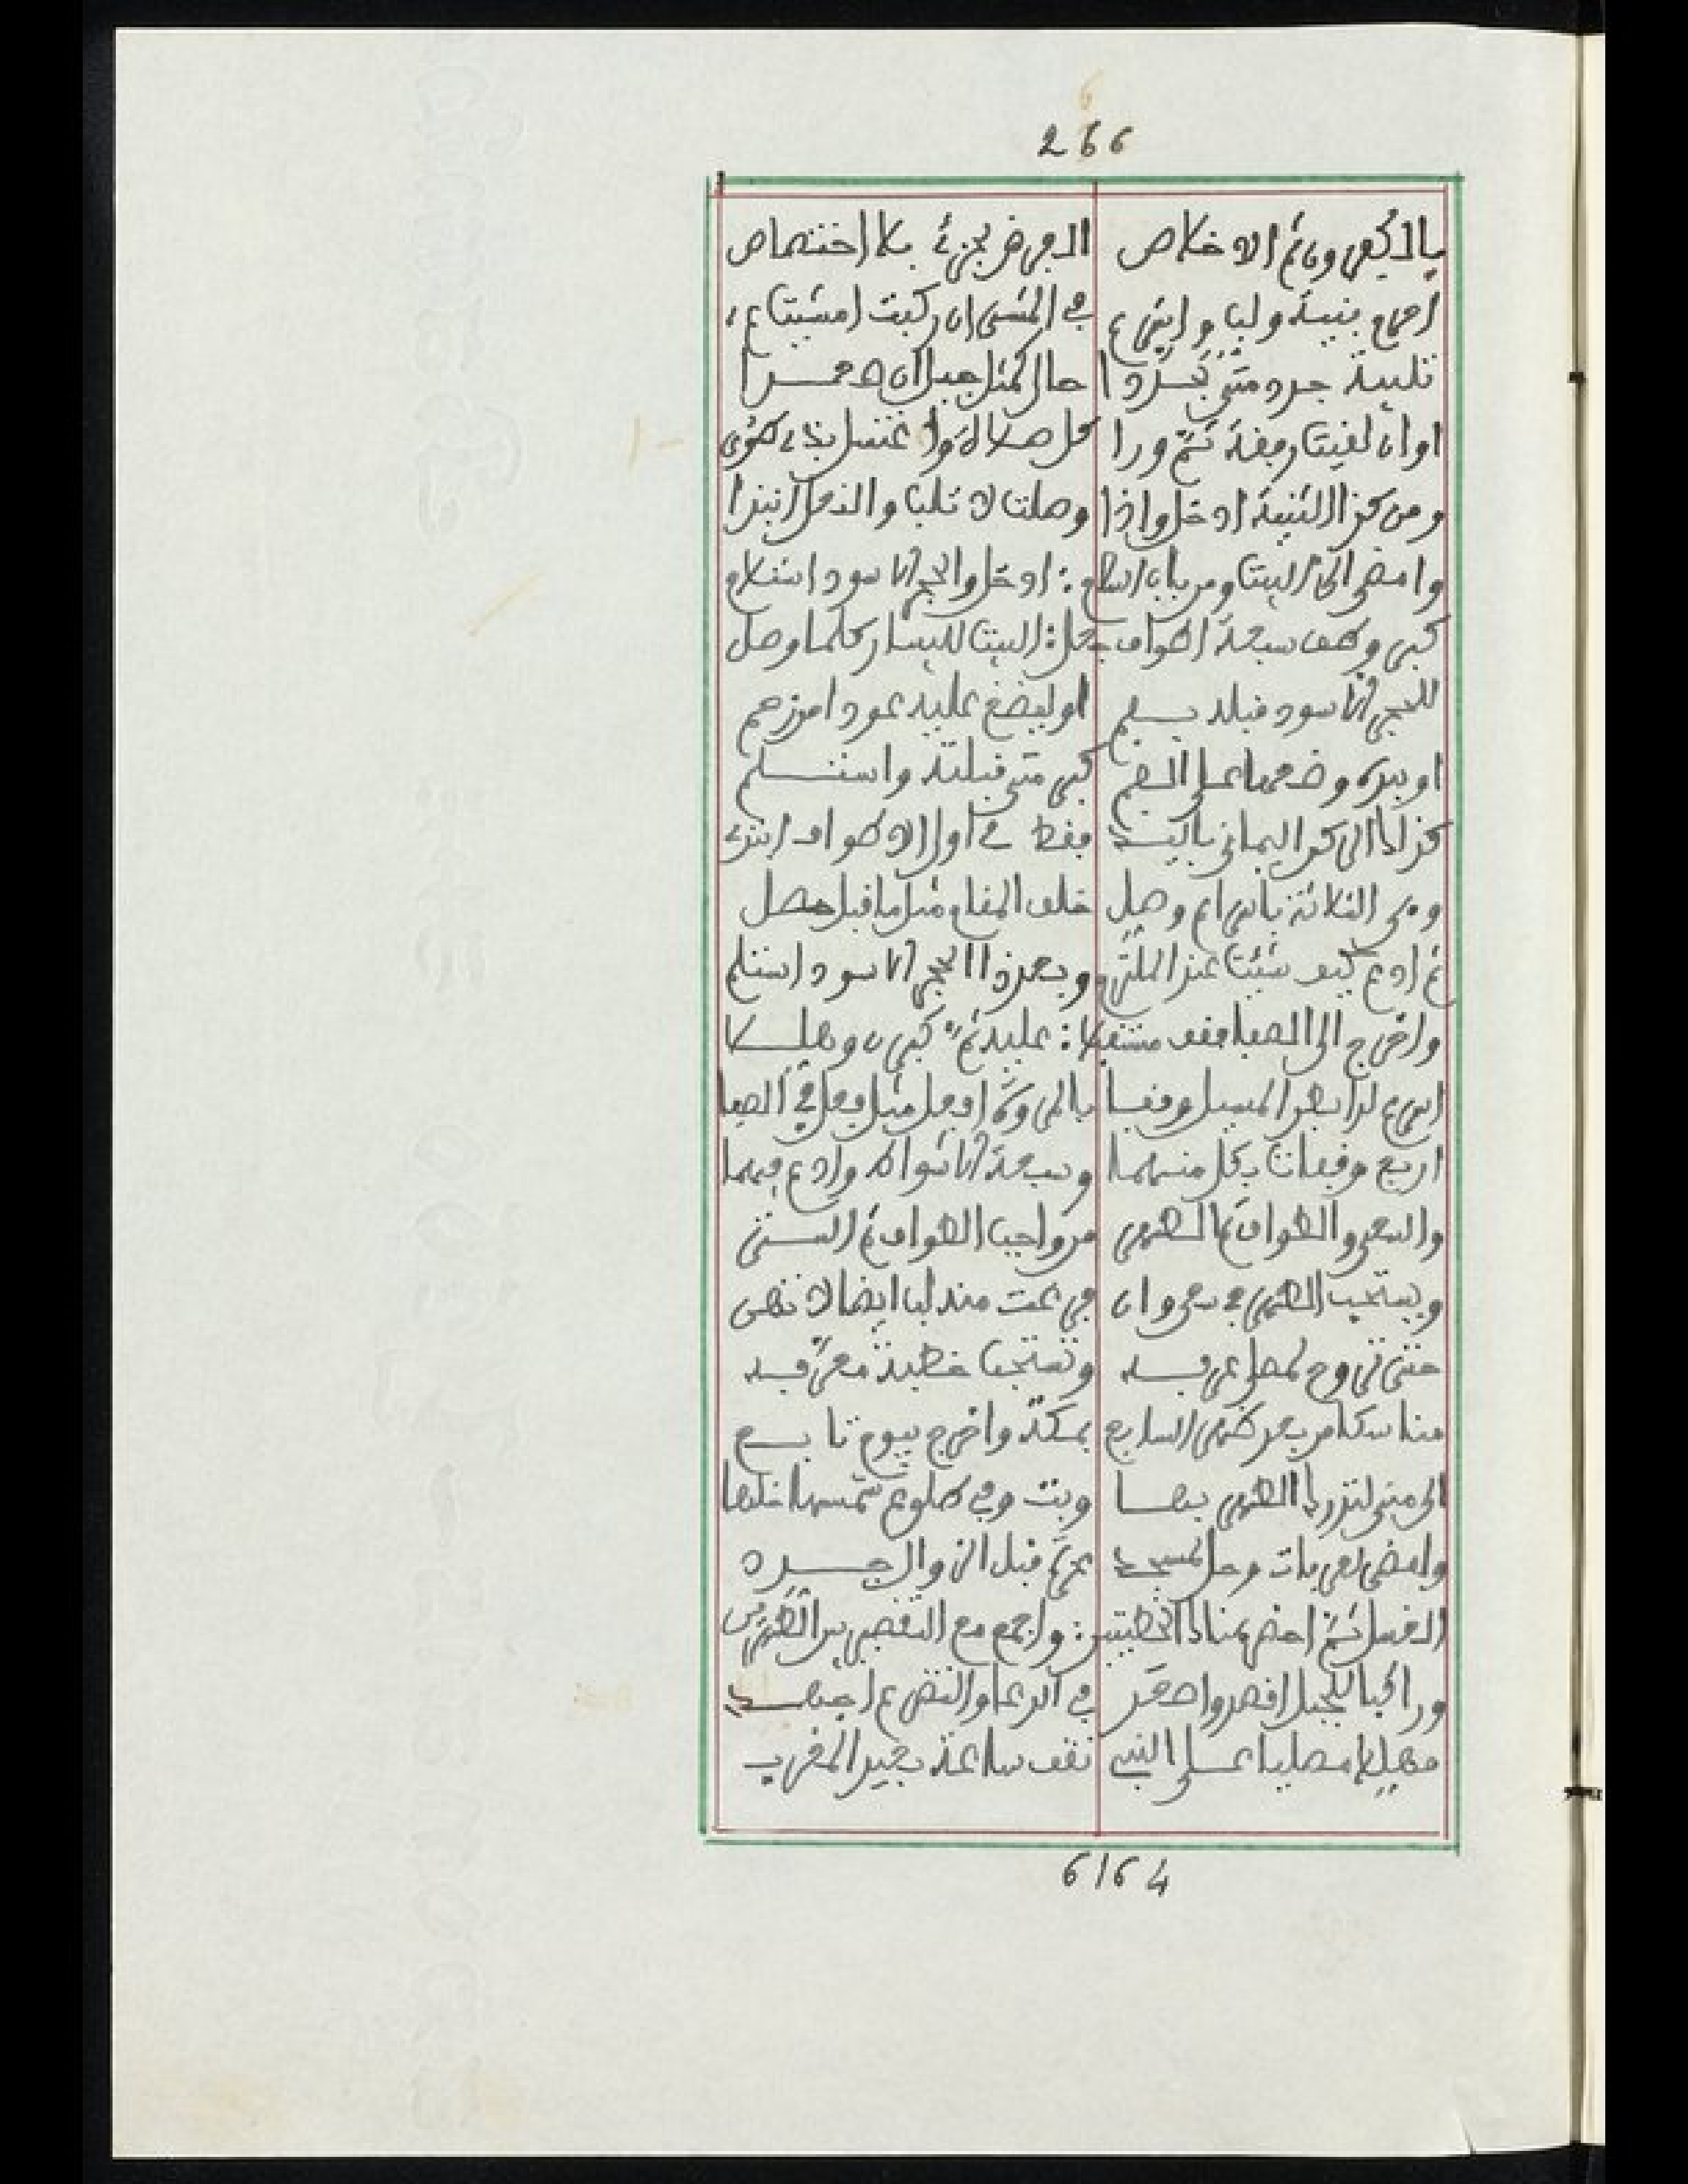 266
بالكفرون ثم الاخلاص الفرض يجزئ بلا اختصاص
احرم بنية ولب واشرع في المشي ان ركبت امشيتا
تلبية جدد متى تجددا حال كمثل جبل ان صعدا
او ان لقيت رفقة ثم ورا كل صلاة واغتسل بذي طوى
ومن كذا الثنية ادخل واذا وصلت لا تلب والدخل انبذا
وامض الى البيت ومن باب السلام : ادخل والحجر الاسود استلام
كبر وطف سبعة اطواف جعل : البيت لليسار كلما وصل
للحجر الاسود قبله بفم او ليضع عليه عودا من زحم
او بيده وضعها على الفم كبر متى قبلته واستلم
كذا الركن اليماني باليد فقط في اول الاطواف ابتدئ
ورمل الثلاثة باسراع وصل خلف المقام مثل ما قبل حصل
ثم ادع كيف شئت عند الملتزم وبعد ذا الحجر الاسود استلم
واخرج الى الصفا فقف مستقبلا : عليه ثم كبرن وهللا
اسرع لدا بطن المسيل وقفا بالمروة افعل مثل فعل في الصفا
اربع وقفات بكل منهما وسبعة الاشواط وادع فيهما
والسعي والطواف ثم الطهر من واجب الطواف ثم السنن
ويستحب الطهر في سعي وان فرغت منه لب ايضا لا تهن
حتى تروح لمصلى عرفه وتستحب خطبة معرفه
مناسكا من بعد ظهر السابع بمكة واخرج بيوم تابع
الى منى لتدرك الظهر بها وبت وفي طلوع شمسها خلها
وامض لعرفات وصل لمسجد نمرة قبل الزوال جرد
الغسل ثم احضر هناك الخطبتين : واجمع مع التقصير بين الظهرين
وراكبا للجبل اقصد واصعد في الدعا والتضرع اجهد
مهللا مصليا على النبي تقف ساعة بعيد المغرب
6164